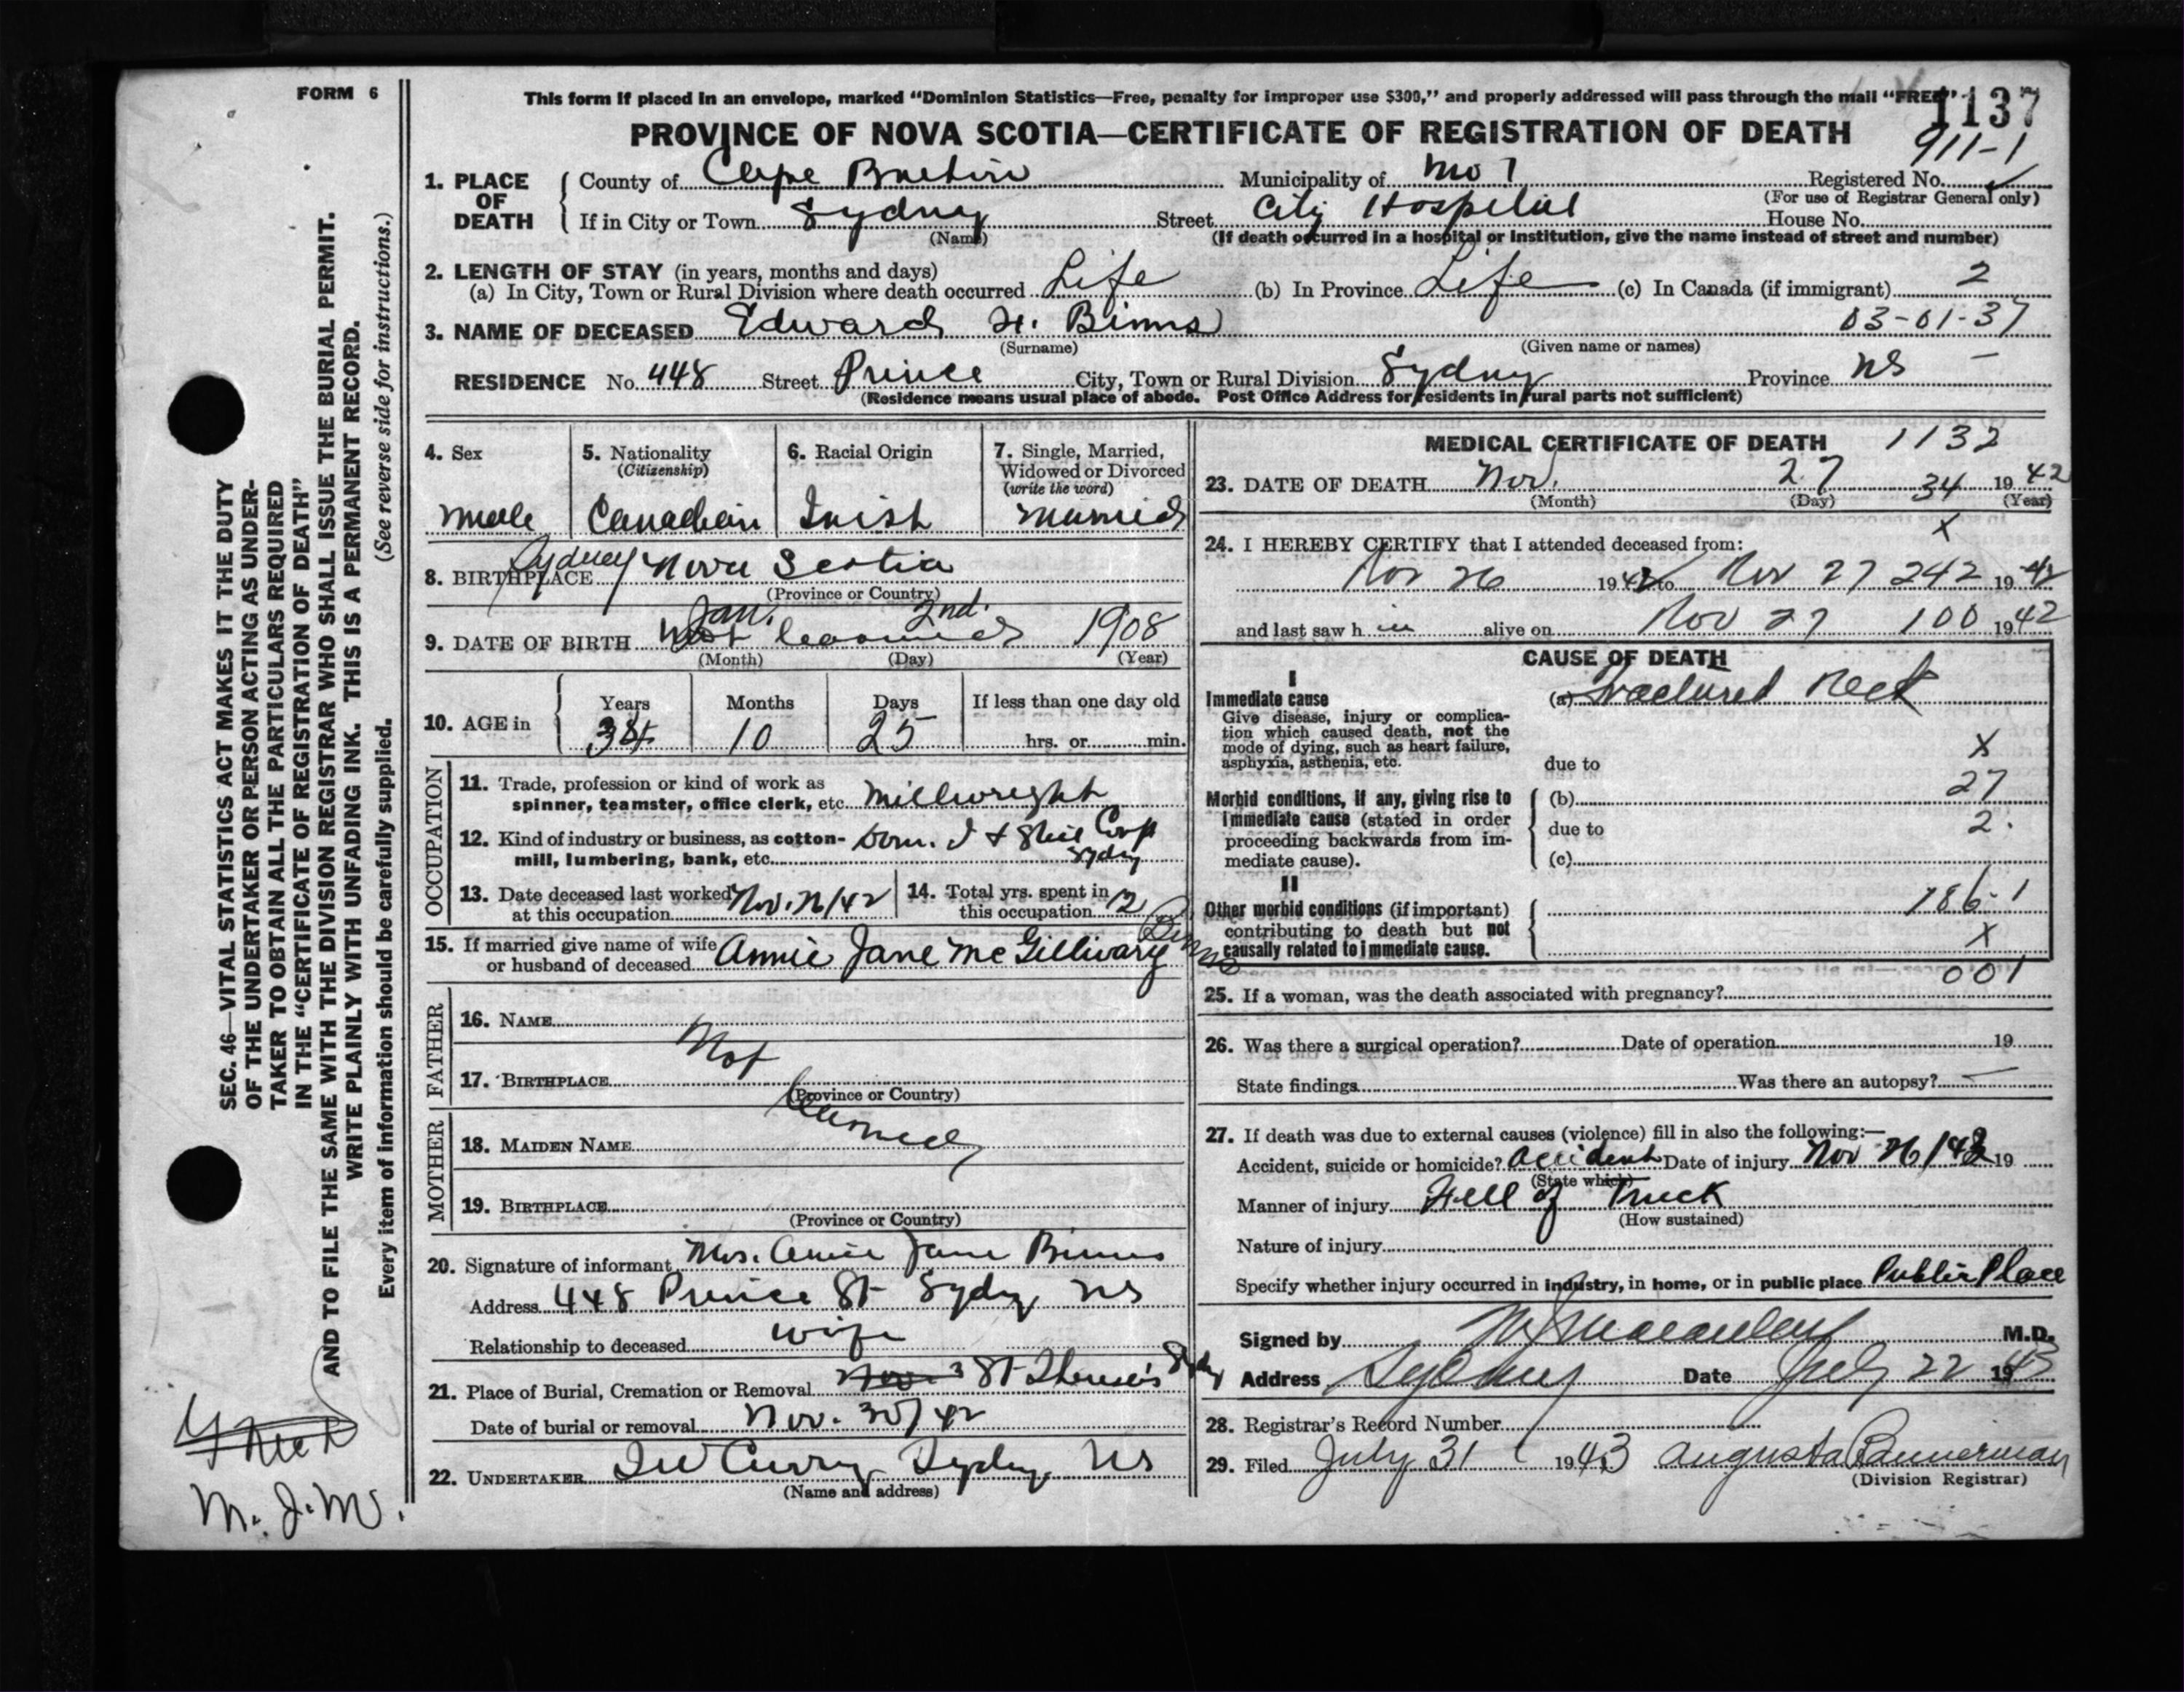 FORM 6
This form if placed in an envelope, marked “Dominion Statistics—Free, penalty for improper use $300,” and properly addressed will pass through the mail “FREE”
1137
PROVINCE OF NOVA SCOTIA—CERTIFICATE OF REGISTRATION OF DEATH
911-1
1. PLACE OF DEATH County of Cape Breton Municipality of No 1 Registered No.
(For use of Registrar General only)
If in City or Town Sydney Street City Hospital House No.
(Name) (If death occurred in a hospital or institution, give the name instead of street and number)
2. LENGTH OF STAY (in years, months and days)
(a) In City, Town or Rural Division where death occurred Life (b) In Province Life (c) In Canada (if immigrant) 2
3. NAME OF DECEASED Edward H. Binns 03-01-37
(Surname) (Given name or names)
RESIDENCE No. 448 Street Prince City, Town or Rural Division Sydney Province NS
(Residence means usual place of abode. Post Office Address for residents in rural parts not sufficient)
4. Sex Male
5. Nationality (Citizenship) Canadian
6. Racial Origin Irish
7. Single, Married, Widowed or Divorced (write the word) Married
8. BIRTHPLACE Sydney Nova Scotia
(Province or Country)
9. DATE OF BIRTH Jan. 2nd. 1908
(Month) (Day) (Year)
10. AGE in Years 34 Months 10 Days 25 If less than one day old hrs. or min.
OCCUPATION
11. Trade, profession or kind of work as spinner, teamster, office clerk, etc. Millwright
12. Kind of industry or business, as cotton-mill, lumbering, bank, etc. Dom. I & Steel Corp Sydney
13. Date deceased last worked at this occupation Nov. 26/42
14. Total yrs. spent in this occupation 12
15. If married give name of wife or husband of deceased Annie Jane McGillivary Binns
FATHER
16. NAME
Not
17. BIRTHPLACE
(Province or Country)
MOTHER
18. MAIDEN NAME
19. BIRTHPLACE
(Province or Country)
20. Signature of informant Mrs. Annie Jane Binns
Address 448 Prince St Sydney NS
Relationship to deceased wife
21. Place of Burial, Cremation or Removal St Therese's Sydney
Date of burial or removal Nov. 30/42
22. UNDERTAKER Curry Sydney, NS
(Name and address)
MEDICAL CERTIFICATE OF DEATH 1132
23. DATE OF DEATH Nov. 27 34 1942
(Month) (Day) (Year)
X
24. I HEREBY CERTIFY that I attended deceased from:
Nov 26 1942 to Nov 27 242 1942
and last saw h im alive on Nov 27 100 1942
CAUSE OF DEATH
I
Immediate cause
Give disease, injury or complication which caused death, not the mode of dying, such as heart failure, asphyxia, asthenia, etc.
(a) Fractured Neck
X
due to
Morbid conditions, if any, giving rise to immediate cause (stated in order proceeding backwards from immediate cause).
(b) 27
due to 2.
(c)
II
Other morbid conditions (if important) contributing to death but not causally related to immediate cause.
186-1
X
001
25. If a woman, was the death associated with pregnancy?
26. Was there a surgical operation? Date of operation 19
State findings Was there an autopsy? —
27. If death was due to external causes (violence) fill in also the following:—
Accident, suicide or homicide? Accident Date of injury Nov 26/42 19
(State which)
Manner of injury Fell of Truck
(How sustained)
Nature of injury
Specify whether injury occurred in industry, in home, or in public place Public Place
Signed by M.D.
Address Sydney Date July 22 1943
28. Registrar's Record Number
29. Filed July 31 1943 Augusta Bannerman
(Division Registrar)
SEC. 46—VITAL STATISTICS ACT MAKES IT THE DUTY
OF THE UNDERTAKER OR PERSON ACTING AS UNDER-
TAKER TO OBTAIN ALL THE PARTICULARS REQUIRED
IN THE “CERTIFICATE OF REGISTRATION OF DEATH”
AND TO FILE THE SAME WITH THE DIVISION REGISTRAR WHO SHALL ISSUE THE BURIAL PERMIT.
WRITE PLAINLY WITH UNFADING INK. THIS IS A PERMANENT RECORD.
Every item of information should be carefully supplied. (See reverse side for instructions.)
M. J. M.